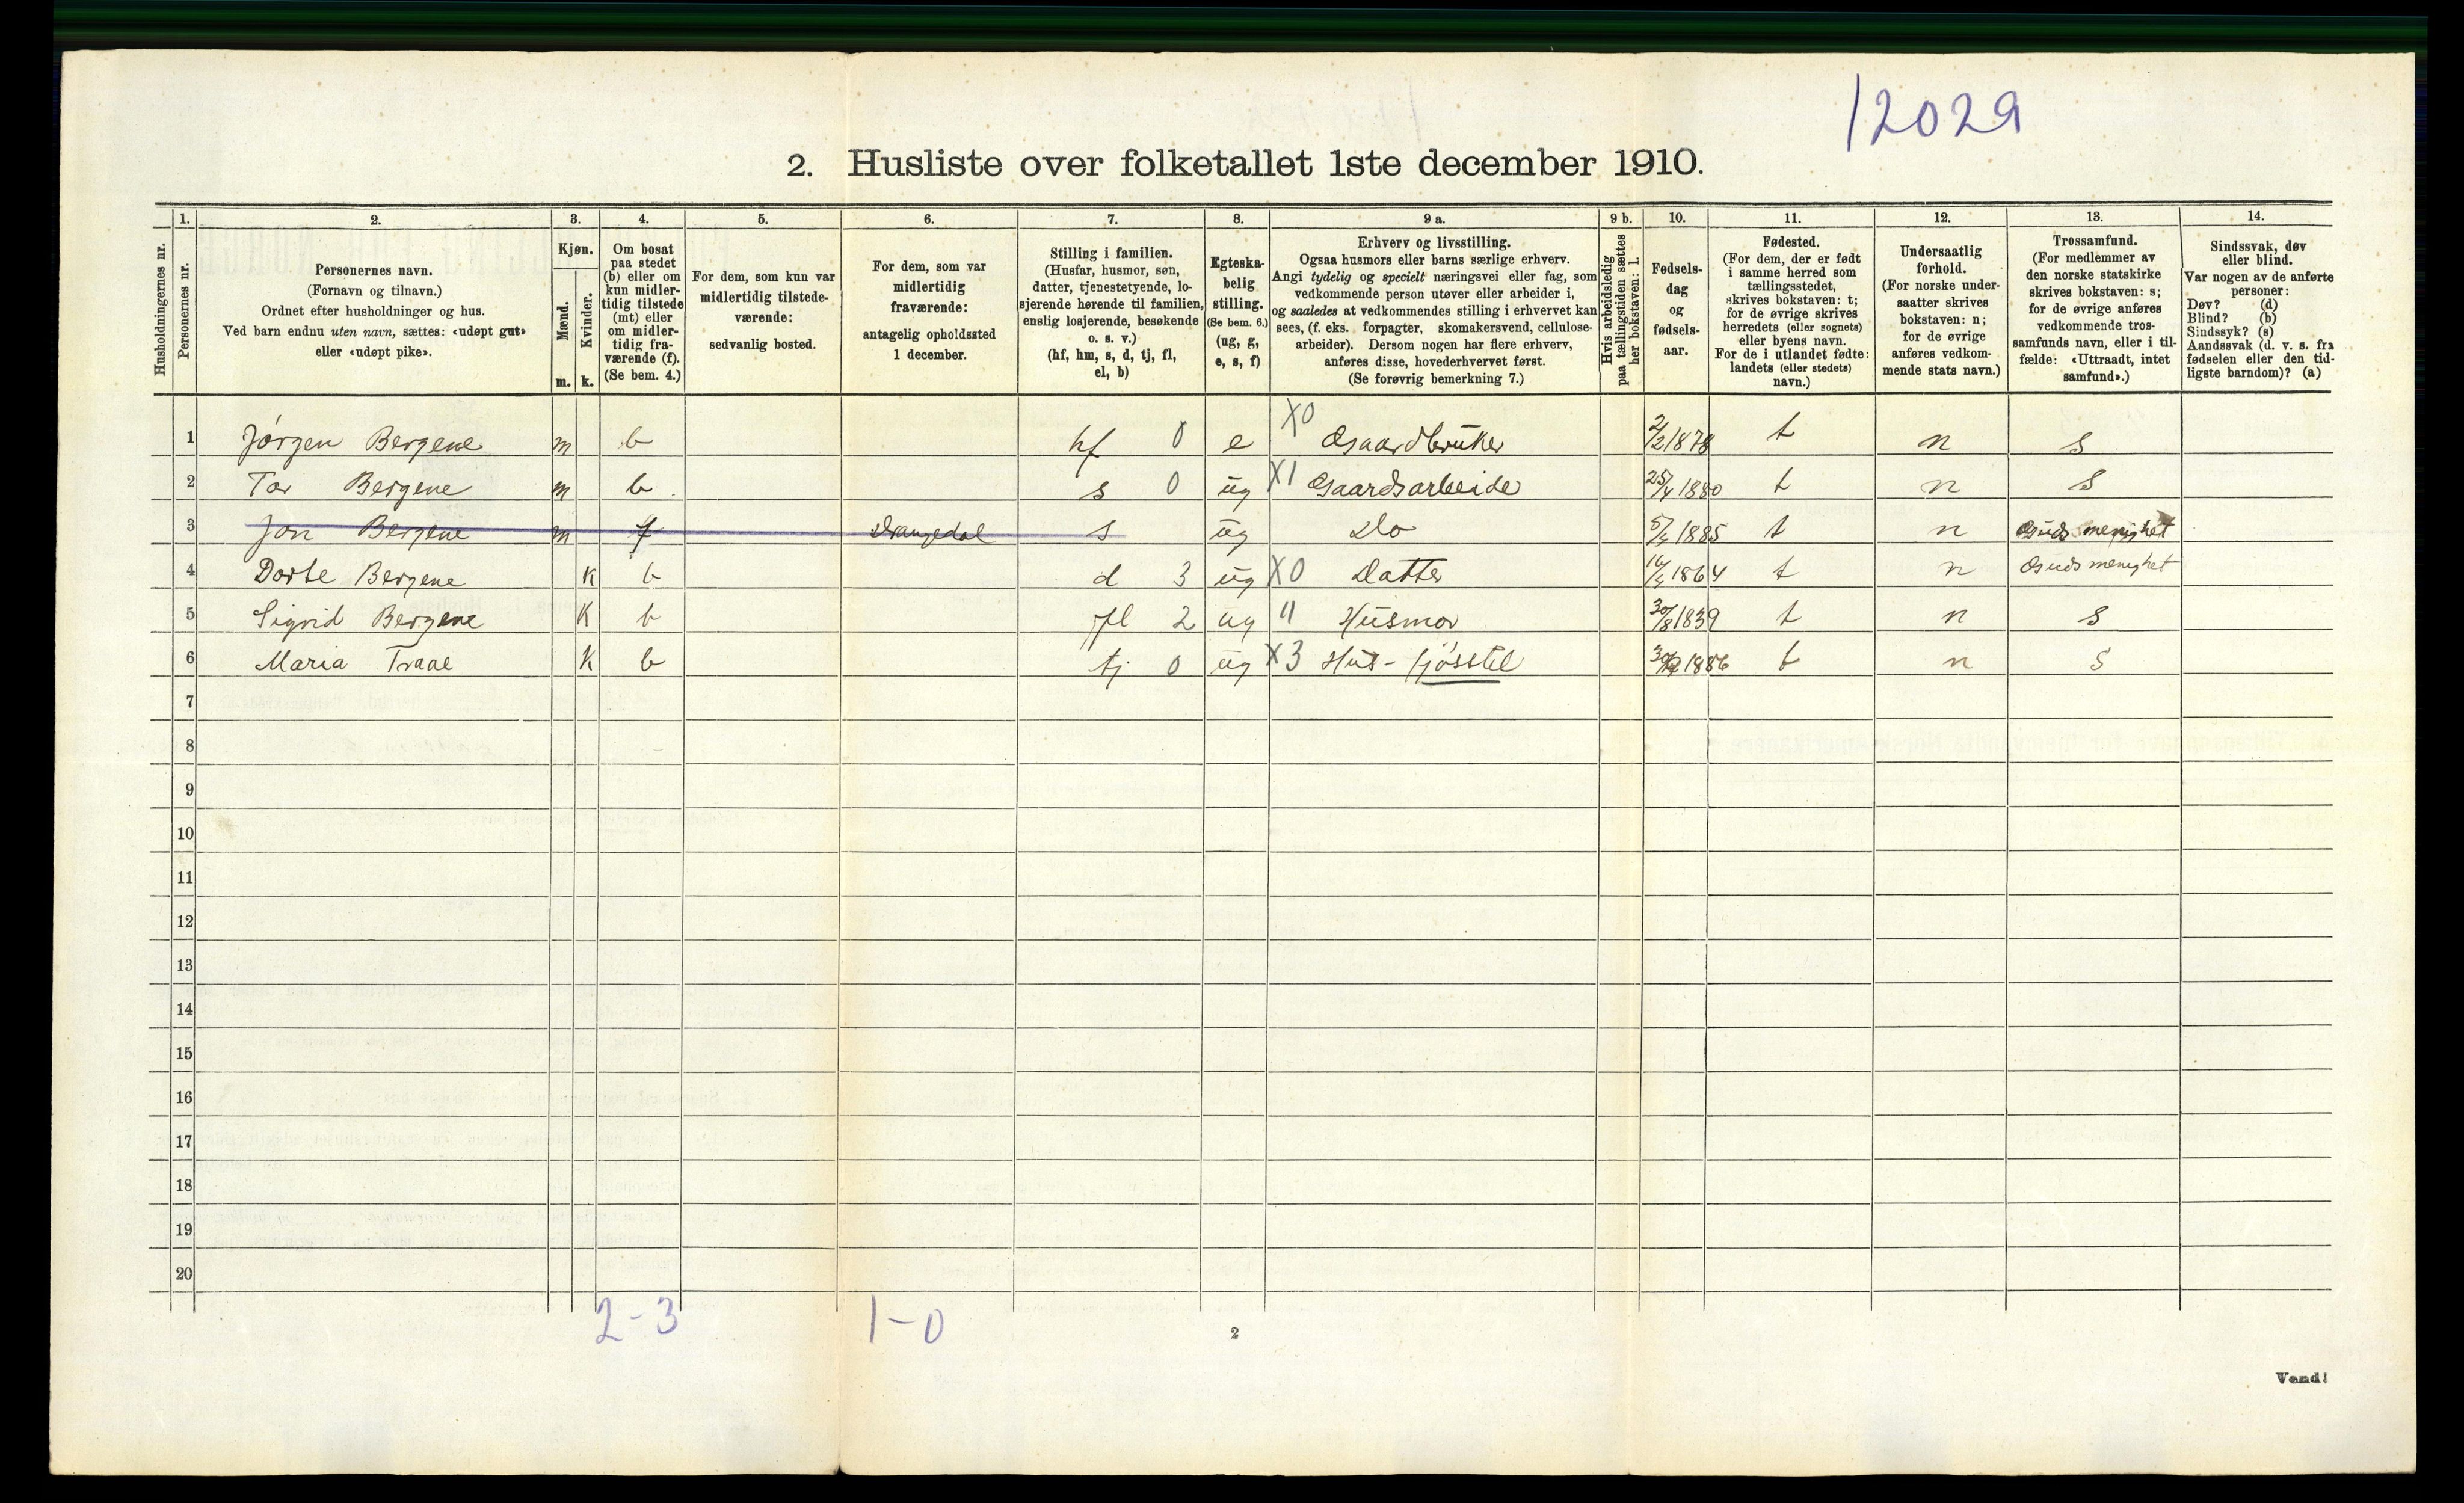 12029
2. Husliste over folketallet 1ste december 1910.
1. 2. 3. 4. 5. 6. 7. 8. 9 a. 9 b. 10. 11. 12. 13. 14.
Husholdningernes nr.
Personernes nr.
Personernes navn.
(Fornavn og tilnavn.)
Ordnet efter husholdninger og hus.
Ved barn endnu uten navn, sættes: «udøpt gut»
eller «udøpt pike».
Kjøn.
Mænd.
Kvinder.
m. k.
Om bosat
paa stedet
(b) eller om
kun midler-
tidig tilstede
(mt) eller
om midler-
tidig fra-
værende (f).
(Se bem. 4.)
For dem, som kun var
midlertidig tilstede-
værende:
sedvanlig bosted.
For dem, som var
midlertidig
fraværende:
antagelig opholdssted
1 december.
Stilling i familien.
(Husfar, husmor, søn,
datter, tjenestetyende, lo-
sjerende hørende til familien,
enslig losjerende, besøkende
o. s. v.)
(hf, hm, s, d, tj, fl,
el, b)
Egteska-
belig
stilling.
(Se bem. 6.)
(ug, g,
e, s, f)
Erhverv og livsstilling.
Ogsaa husmors eller barns særlige erhverv.
Angi tydelig og specielt næringsvei eller fag, som
vedkommende person utøver eller arbeider i,
og saaledes at vedkommendes stilling i erhvervet kan
sees, (f. eks. forpagter, skomakersvend, cellulose-
arbeider). Dersom nogen har flere erhverv,
anføres disse, hovederhvervet først.
(Se forøvrig bemerkning 7.)
Hvis arbeidsledig
paa tællingstiden sættes
her bokstaven: l.
Fødsels-
dag
og
fødsels-
aar.
Fødested.
(For dem, der er født
i samme herred som
tællingsstedet,
skrives bokstaven: t;
for de øvrige skrives
herredets (eller sognets)
eller byens navn.
For de i utlandet fødte:
landets (eller stedets)
navn.)
Undersaatlig
forhold.
(For norske under-
saatter skrives
bokstaven: n;
for de øvrige
anføres vedkom-
mende stats navn.)
Trossamfund.
(For medlemmer av
den norske statskirke
skrives bokstaven: s;
for de øvrige anføres
vedkommende tros-
samfunds navn, eller i til-
fælde: «Uttraadt, intet
samfund».)
Sindssvak, døv
eller blind.
Var nogen av de anførte
personer:
Døv? (d)
Blind? (b)
Sindssyk? (s)
Aandssvak (d. v. s. fra
fødselen eller den tid-
ligste barndom)? (a)
1 Jörgen Bergene m b hf 0 e X0 Gaardbruker 2/2 1878 t n s
2 Tor Bergene m b s 0 ug X1 Gaardsarbeide 25/4 1880 t n s
3 Jon Bergene m f Drangedal s ug Do 1885 t n Guds menighet
4 Dorte Bergene k b d 3 ug X0 Datter 1864 t n Guds menighet
5 Sigrid Bergene K b fl 2 ug " Husmor 30/8 1839 t n s
6 Maria Traae K b tj 0 ug X3 Hus- fjösstel 1886 t n s
7
8
9
10
11
12
13
14
15
16
17
18
19
20
2-3 1-0
2
Vend!